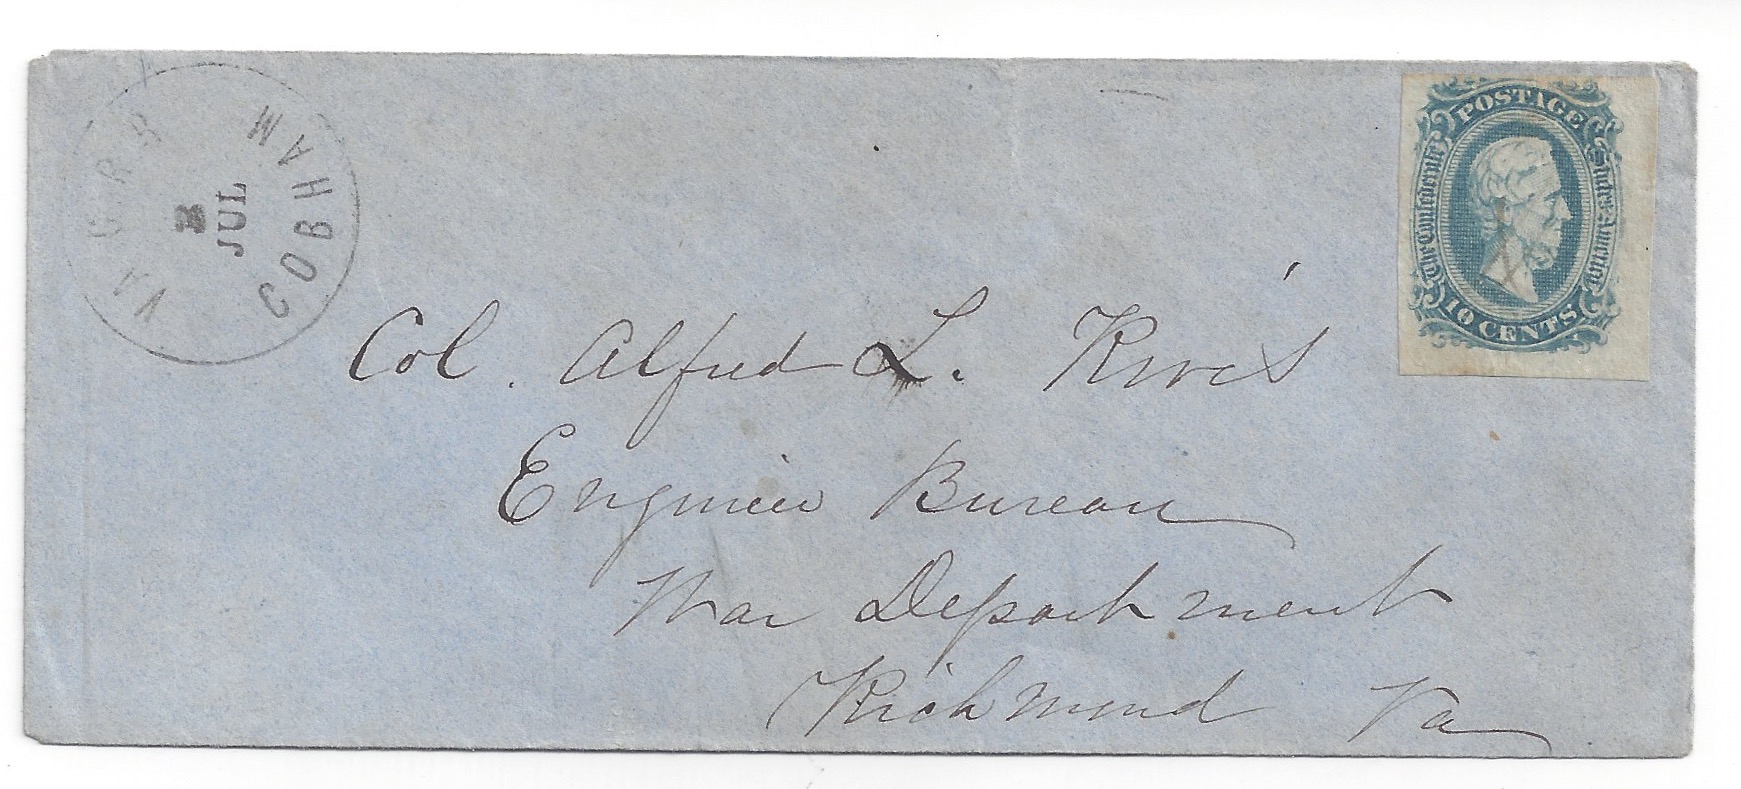 COBHAM
VA C.R.R
JUL
POSTAGE
The Confederate States America
10 CENTS
Col. Alfred L. Rives
Engineer Bureau
War Department
Richmond Va